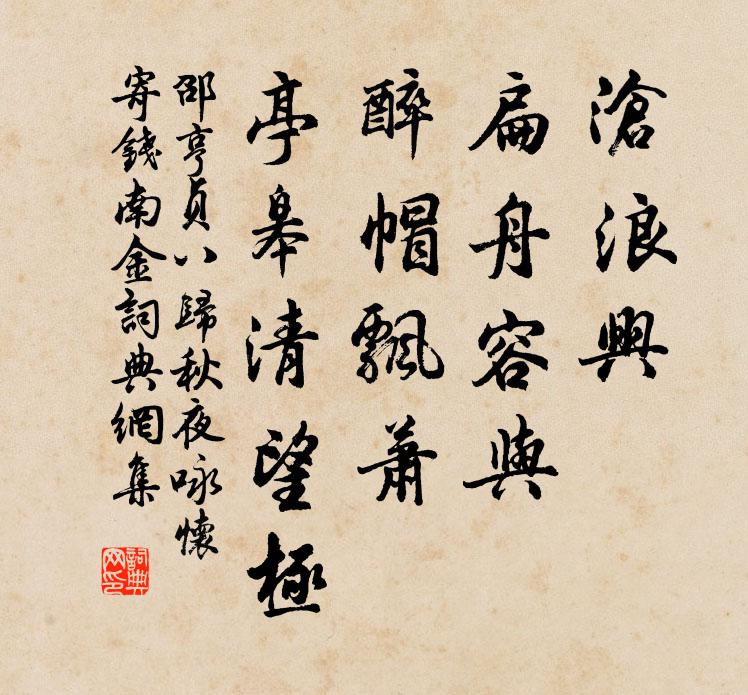 滄浪興
扁舟容與
醉帽飄蕭
亭皋清望極
邵亨貞八歸秋夜咏懷
寄錢南金詞典網集
詞典网印